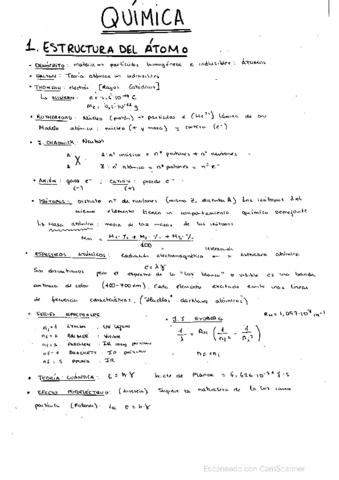 QUÍMICA
1. ESTRUCTURA DEL ÁTOMO
· DEMÓCRITO: materia → partículas homogéneas e indivisibles: ÁTOMOS
· DALTON: Teoría atómica → indivisibles
· THOMSON: electrón [Rayos Catódicos]
· RUTHERFORD: Núcleo (protón) → partículas α (He²⁺) lámina de oro
Modelo atómico: núcleo (+ y masa) y corteza (e⁻)
· J. CHADWICK: Neutrón
A X A: nº másico = nº protones + nº neutrones
Z Z: nº atómico = nº protones = nº e⁻
· ANIÓN: gana e⁻ ; CATIÓN: pierde e⁻
(-) (+)
· ISÓTOPOS: Distinto nº de neutrones (mismo Z, distinto A) Los isótopos del
mismo elemento tienen un comportamiento químico semejante
↳ Masa atómica: media de las masas de los isótopos
100
· ESPECTROS ATÓMICOS: Radiación electromagnética ↔ estructura atómica
Son discontinuos pero el espectro de la "luz blanca" o visible es una banda
continua de color (400-700nm). Cada elemento excitado emite unas líneas
de frecuencia características. ("Huellas" atómicos)
· SERIES ESPECTRALES J.J RYDBERG
n₁=1 LYMAN: UV lejano
n₁=2 BALMER: Visible
n₁=3 PASCHEN: IR muy próximo
n₁=4 BRACKETT: IR próximo
n₁=5 PFUND: IR
1/λ = R_H (1/n₁² - 1/n₂²)
n₁<n₂
· TEORÍA CUÁNTICA: E = h·γ h: cte de Planck = 6,626·10⁻³⁴ J·s
· EFECTO FOTOELÉCTRICO: (Einstein) Supone la naturaleza de la luz como
partícula (Fotones). E = h·γ
Escaneado con CamScanner